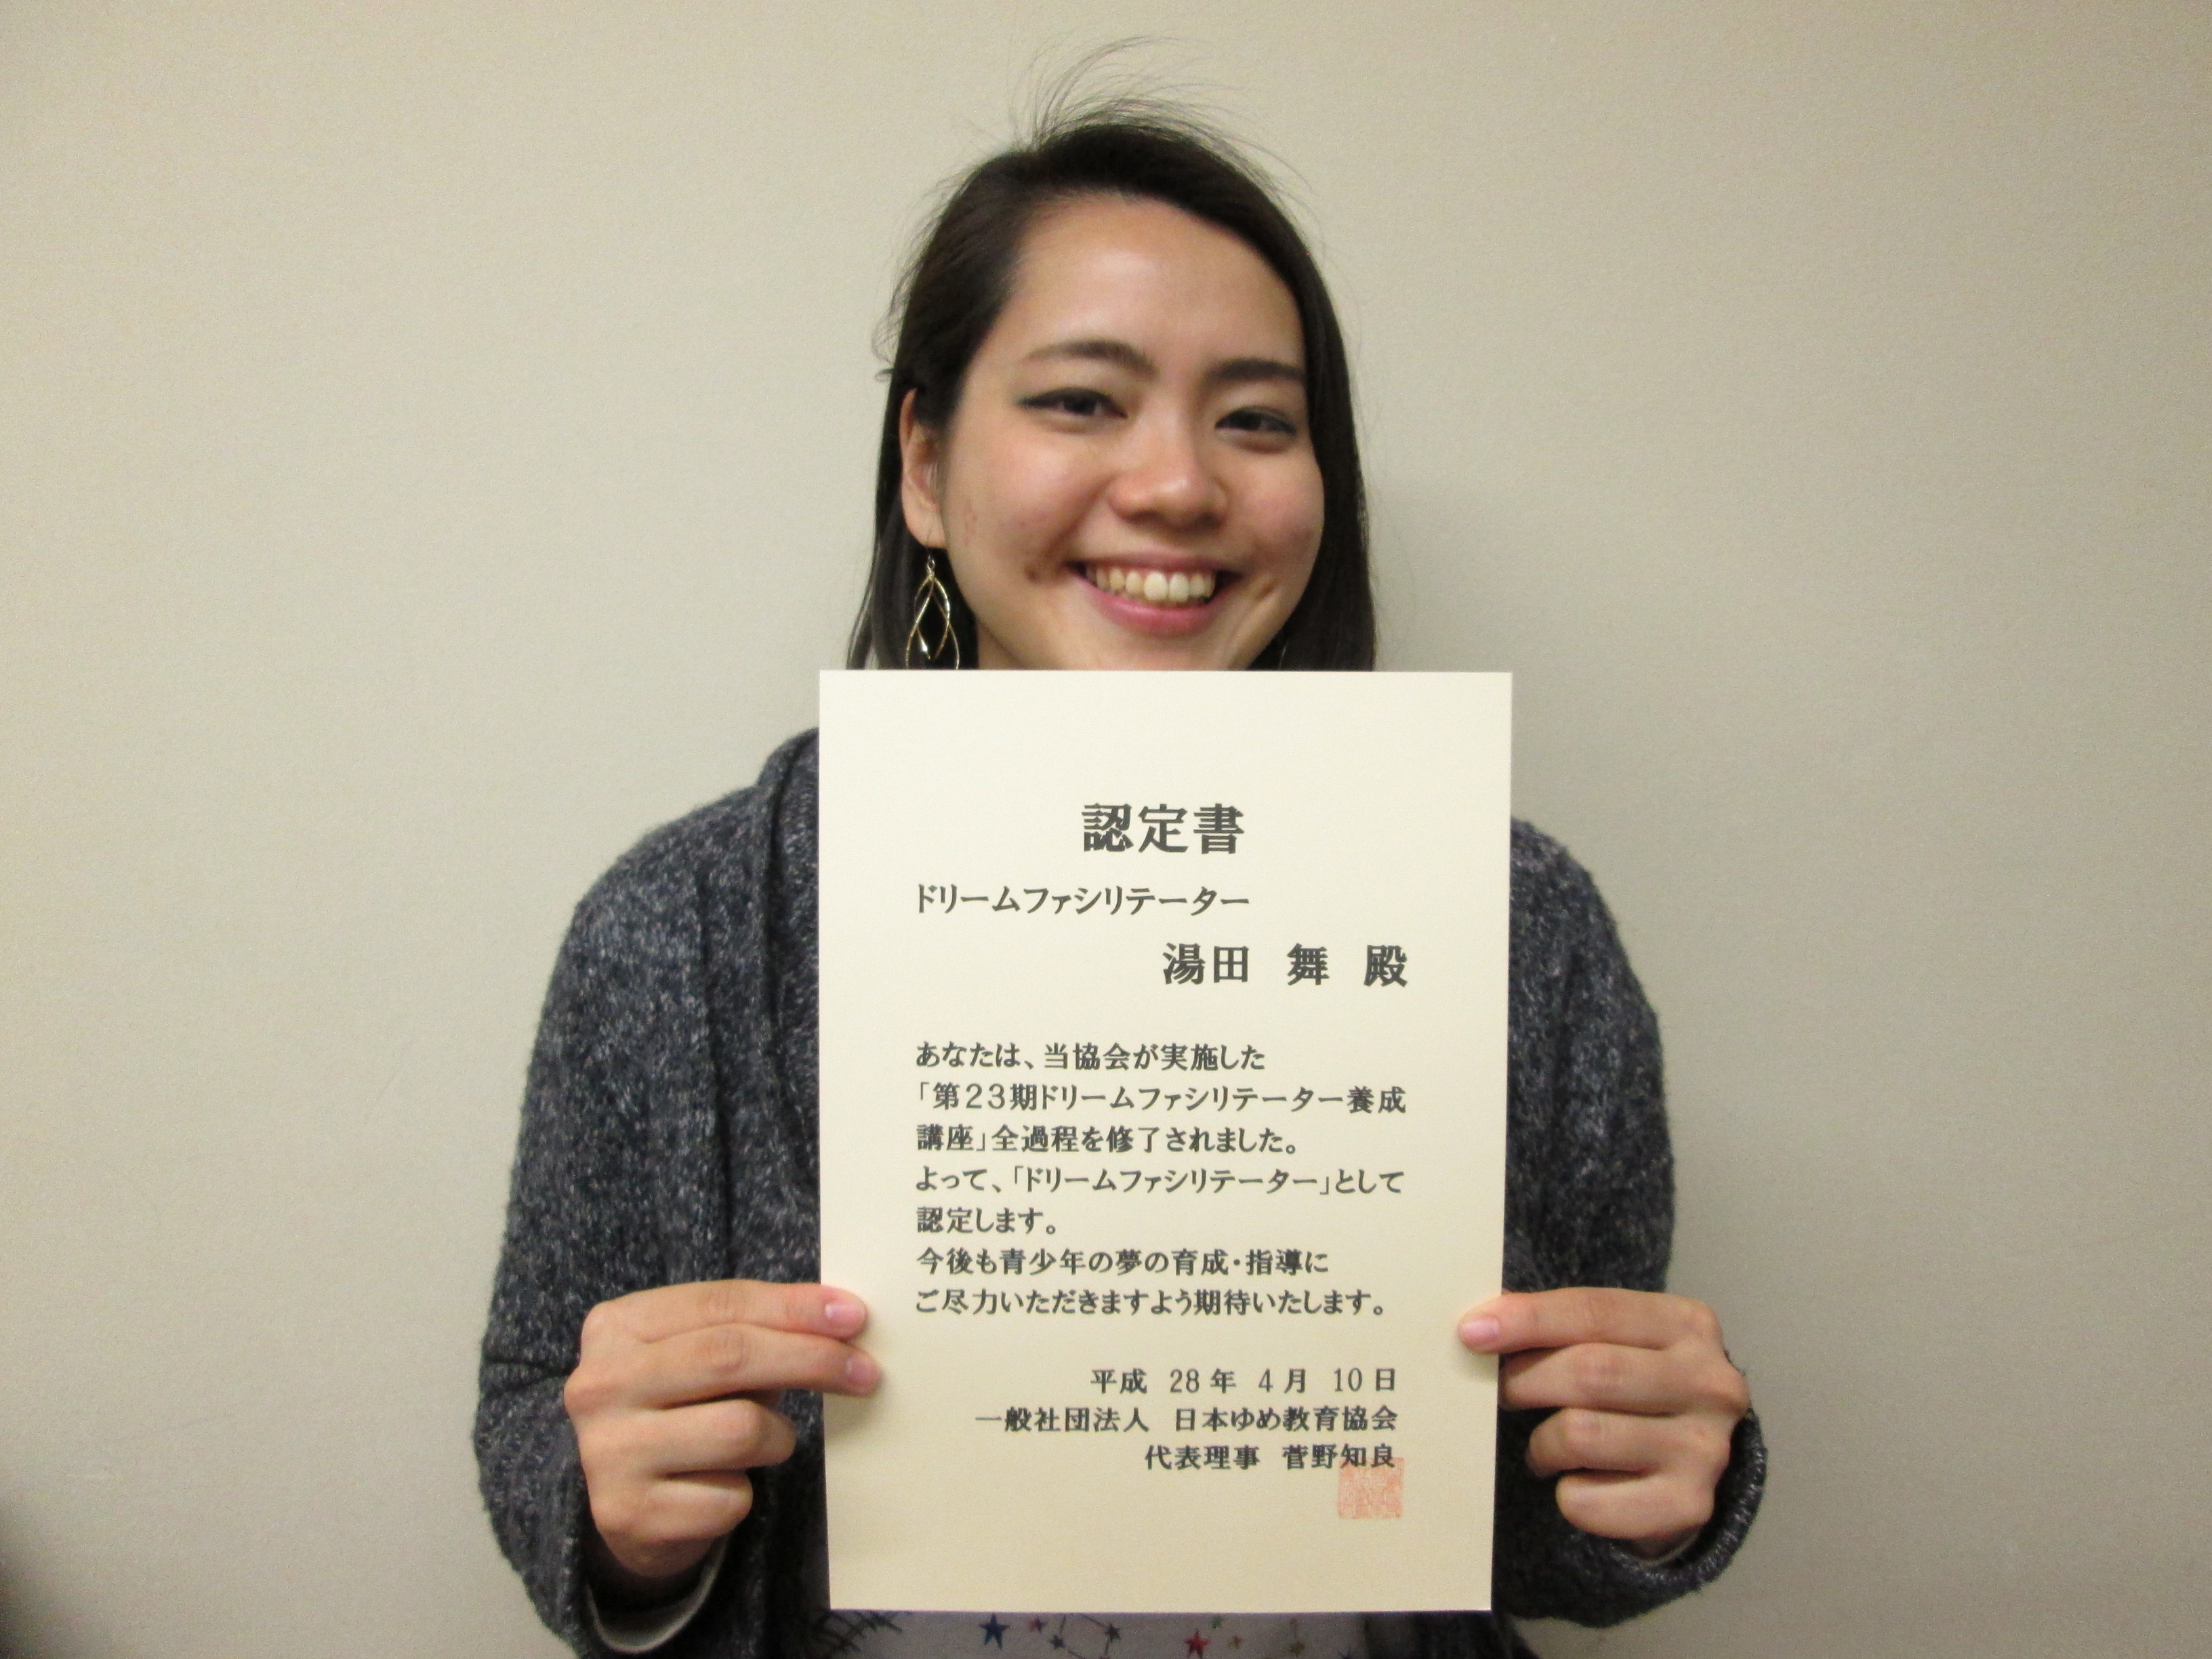 認定書
ドリームファシリテーター
湯田 舞 殿
あなたは、当協会が実施した
「第23期ドリームファシリテーター養成
講座」全過程を修了されました。
よって、「ドリームファシリテーター」として
認定します。
今後も青少年の夢の育成・指導に
ご尽力いただきますよう期待いたします。
平成 28 年 4 月 10 日
一般社団法人 日本ゆめ教育協会
代表理事 菅野知良